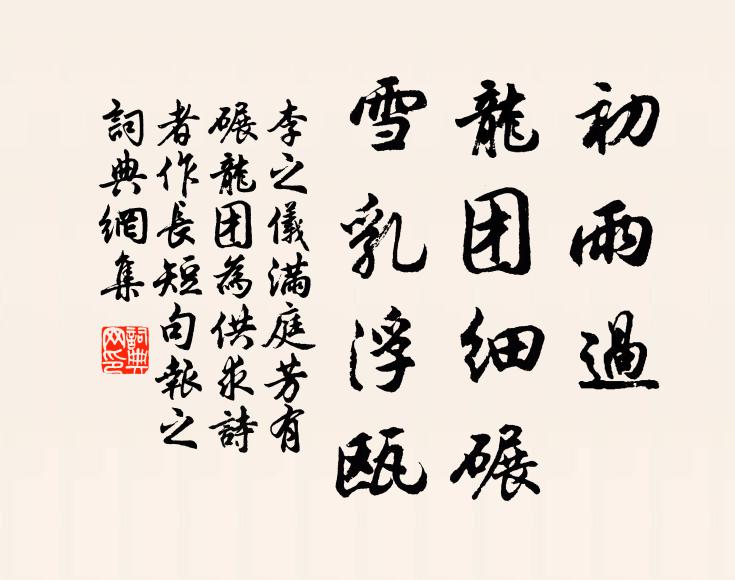 初雨過
龍团细碾
雪乳浮瓯
李之儀滿庭芳有
碾龍团為供求詩
者作長短句報之
詞典網集
詞典網印